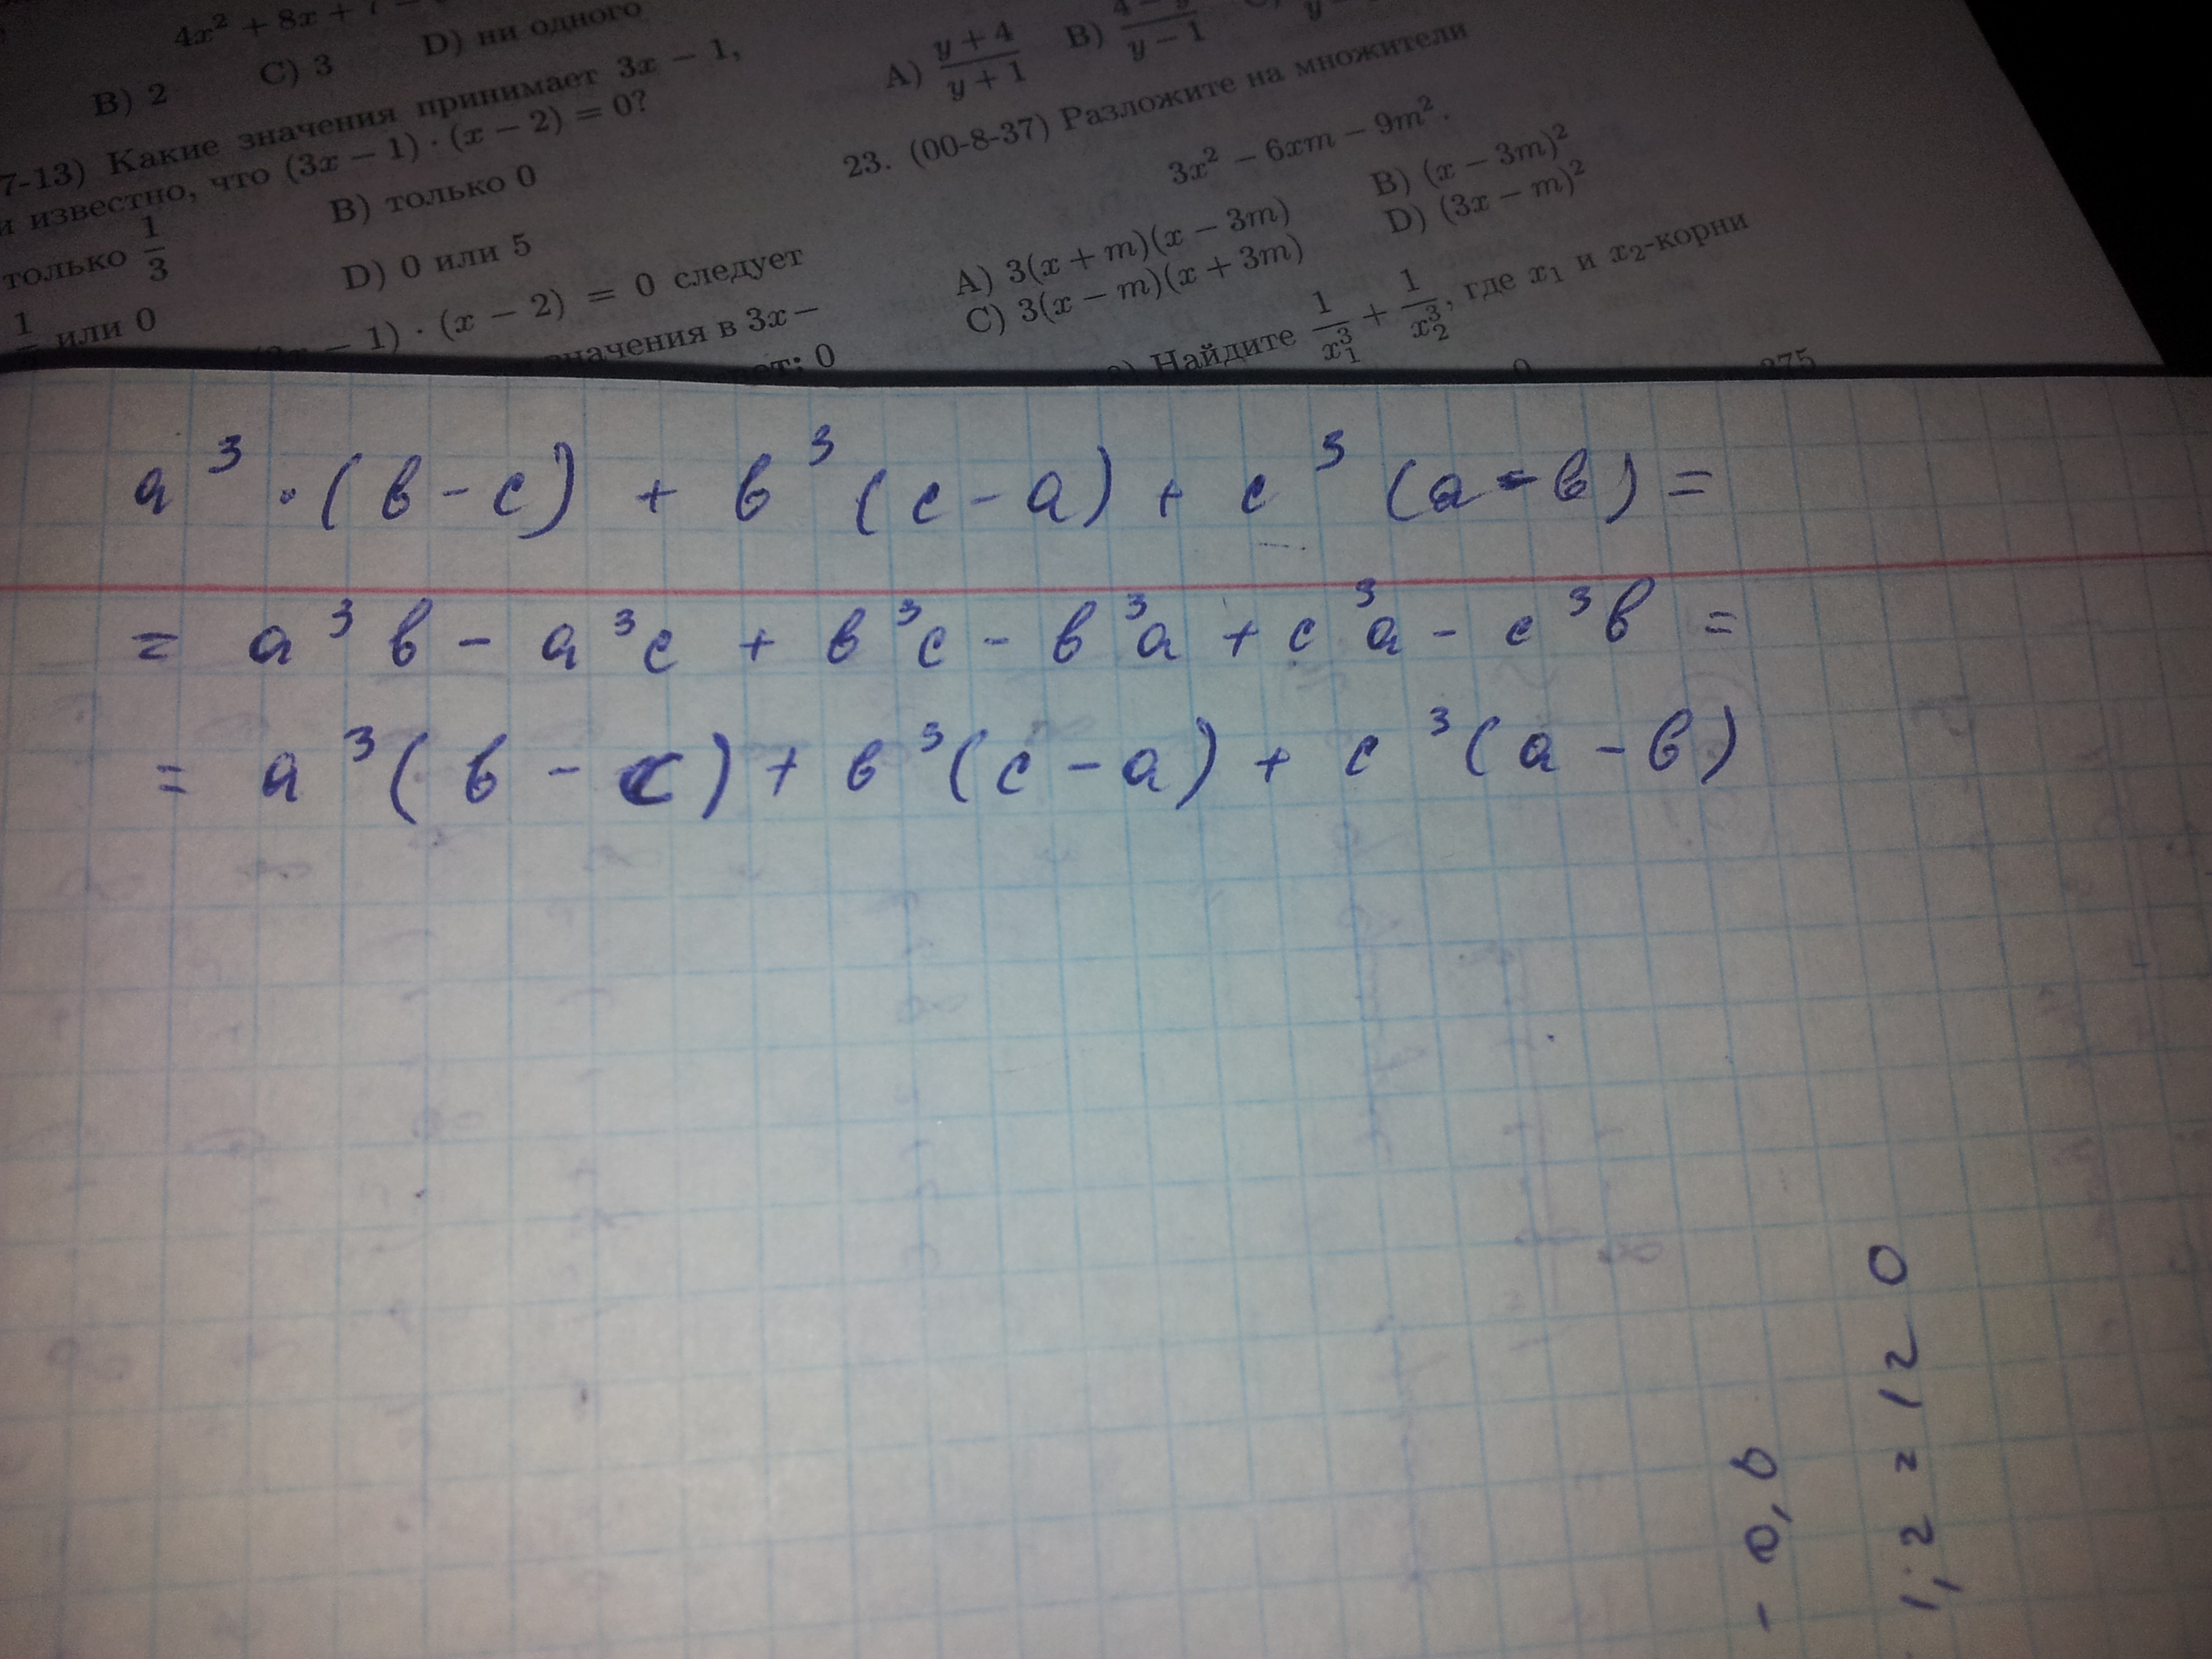 4x² + 8x + 7
B) 2 C) 3 D) ни одного
7-13) Какие значения принимает 3x − 1,
и известно, что (3x − 1) · (x − 2) = 0?
только 1/3 B) только 0
или 0 D) 0 или 5
− 1) · (x − 2) = 0 следует
значения в 3x −
0
A) (y + 4)/(y + 1) B) y − 1
23. (00-8-37) Разложите на множители
3x² − 6xm − 9m².
A) 3(x + m)(x − 3m) B) (x − 3m)²
C) 3(x − m)(x + 3m) D) (3x − m)²
Найдите 1/x₁³ + 1/x₂³, где x₁ и x₂-корни
375
a³ · (в − c) + в³ (c − a) + c³ (a − в) =
= a³в − a³c + в³c − в³a + c³a − c³в =
= a³(в − c) + в³(c − a) + c³(a − в)
1; 2 = 12 0